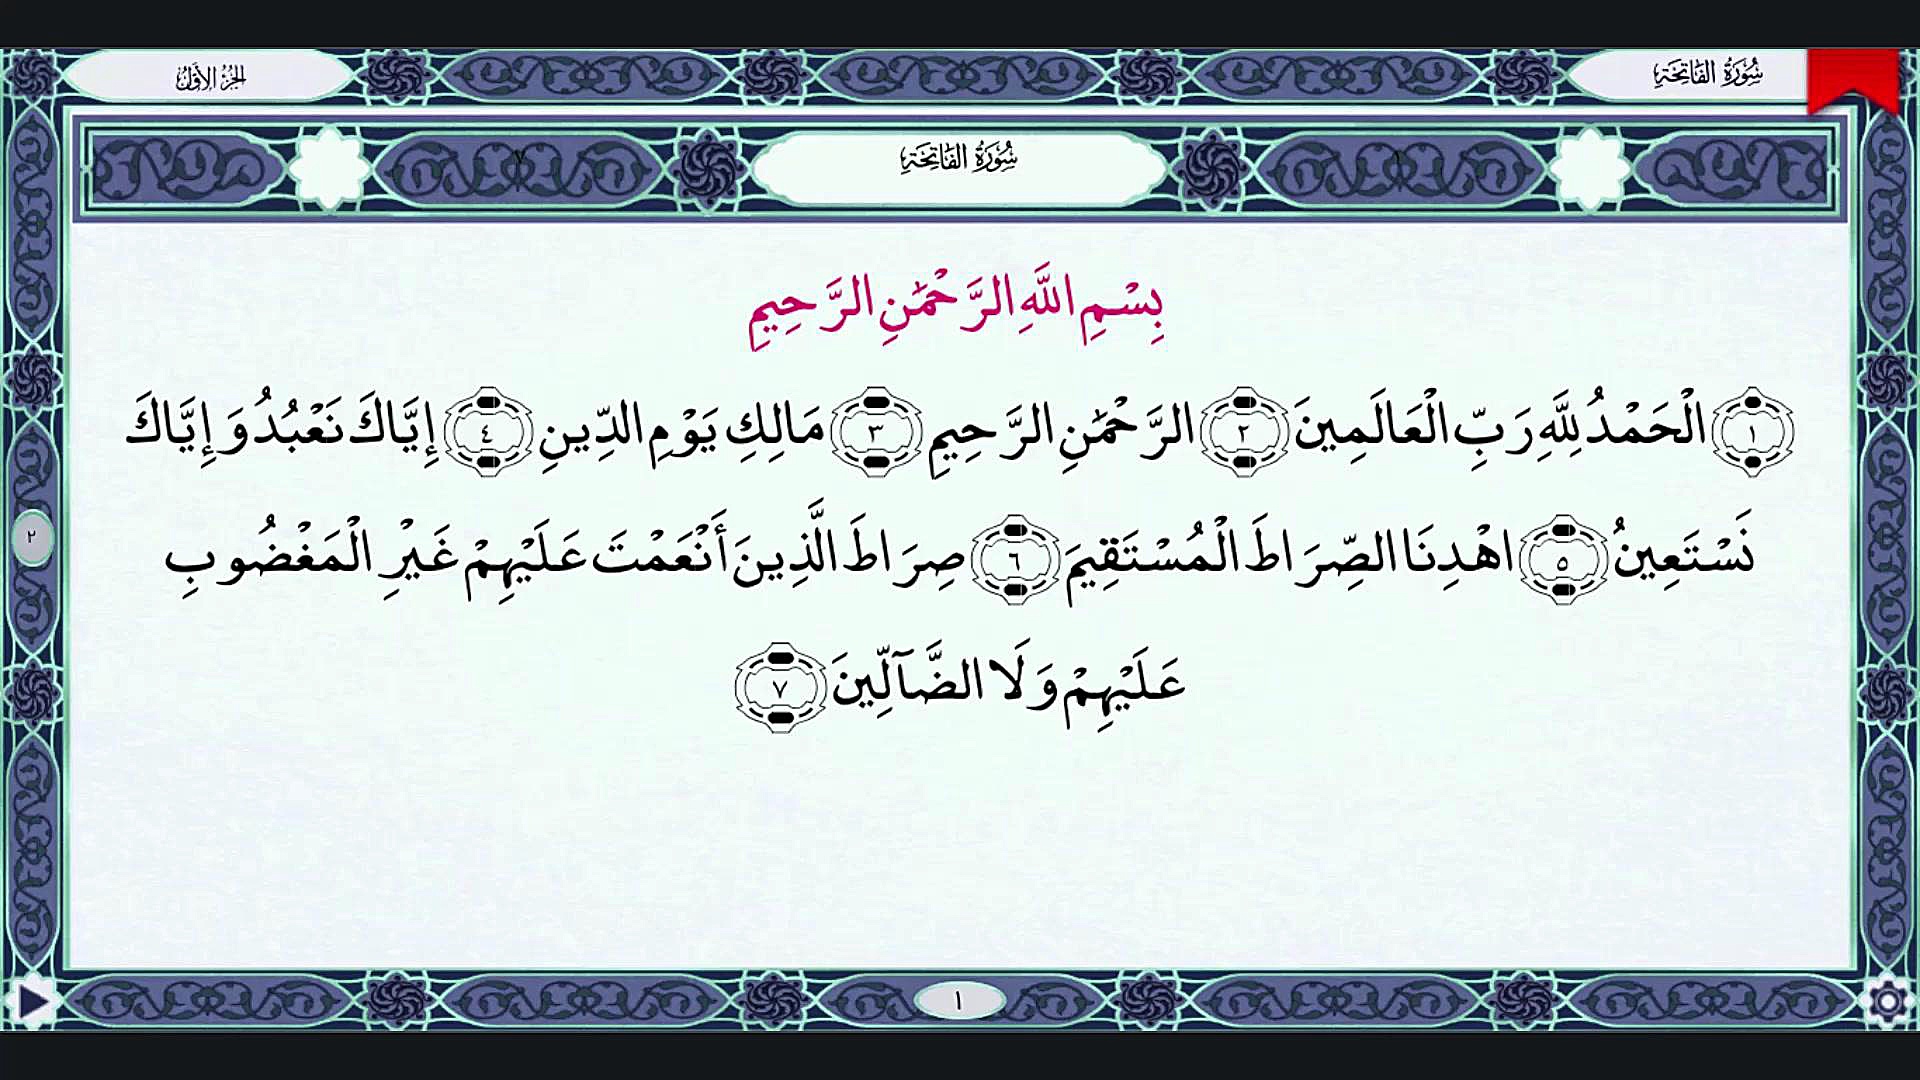 سُورَةُ الفَاتِحَةِ
الجُزْءُ الأَوَّلُ
سُورَةُ الفَاتِحَةِ
٧
بِسْمِ اللَّهِ الرَّحْمَٰنِ الرَّحِيمِ
١ الْحَمْدُ لِلَّهِ رَبِّ الْعَالَمِينَ ٢ الرَّحْمَٰنِ الرَّحِيمِ ٣ مَالِكِ يَوْمِ الدِّينِ ٤ إِيَّاكَ نَعْبُدُ وَإِيَّاكَ
نَسْتَعِينُ ٥ اهْدِنَا الصِّرَاطَ الْمُسْتَقِيمَ ٦ صِرَاطَ الَّذِينَ أَنْعَمْتَ عَلَيْهِمْ غَيْرِ الْمَغْضُوبِ
عَلَيْهِمْ وَلَا الضَّآلِّينَ ٧
٢
١